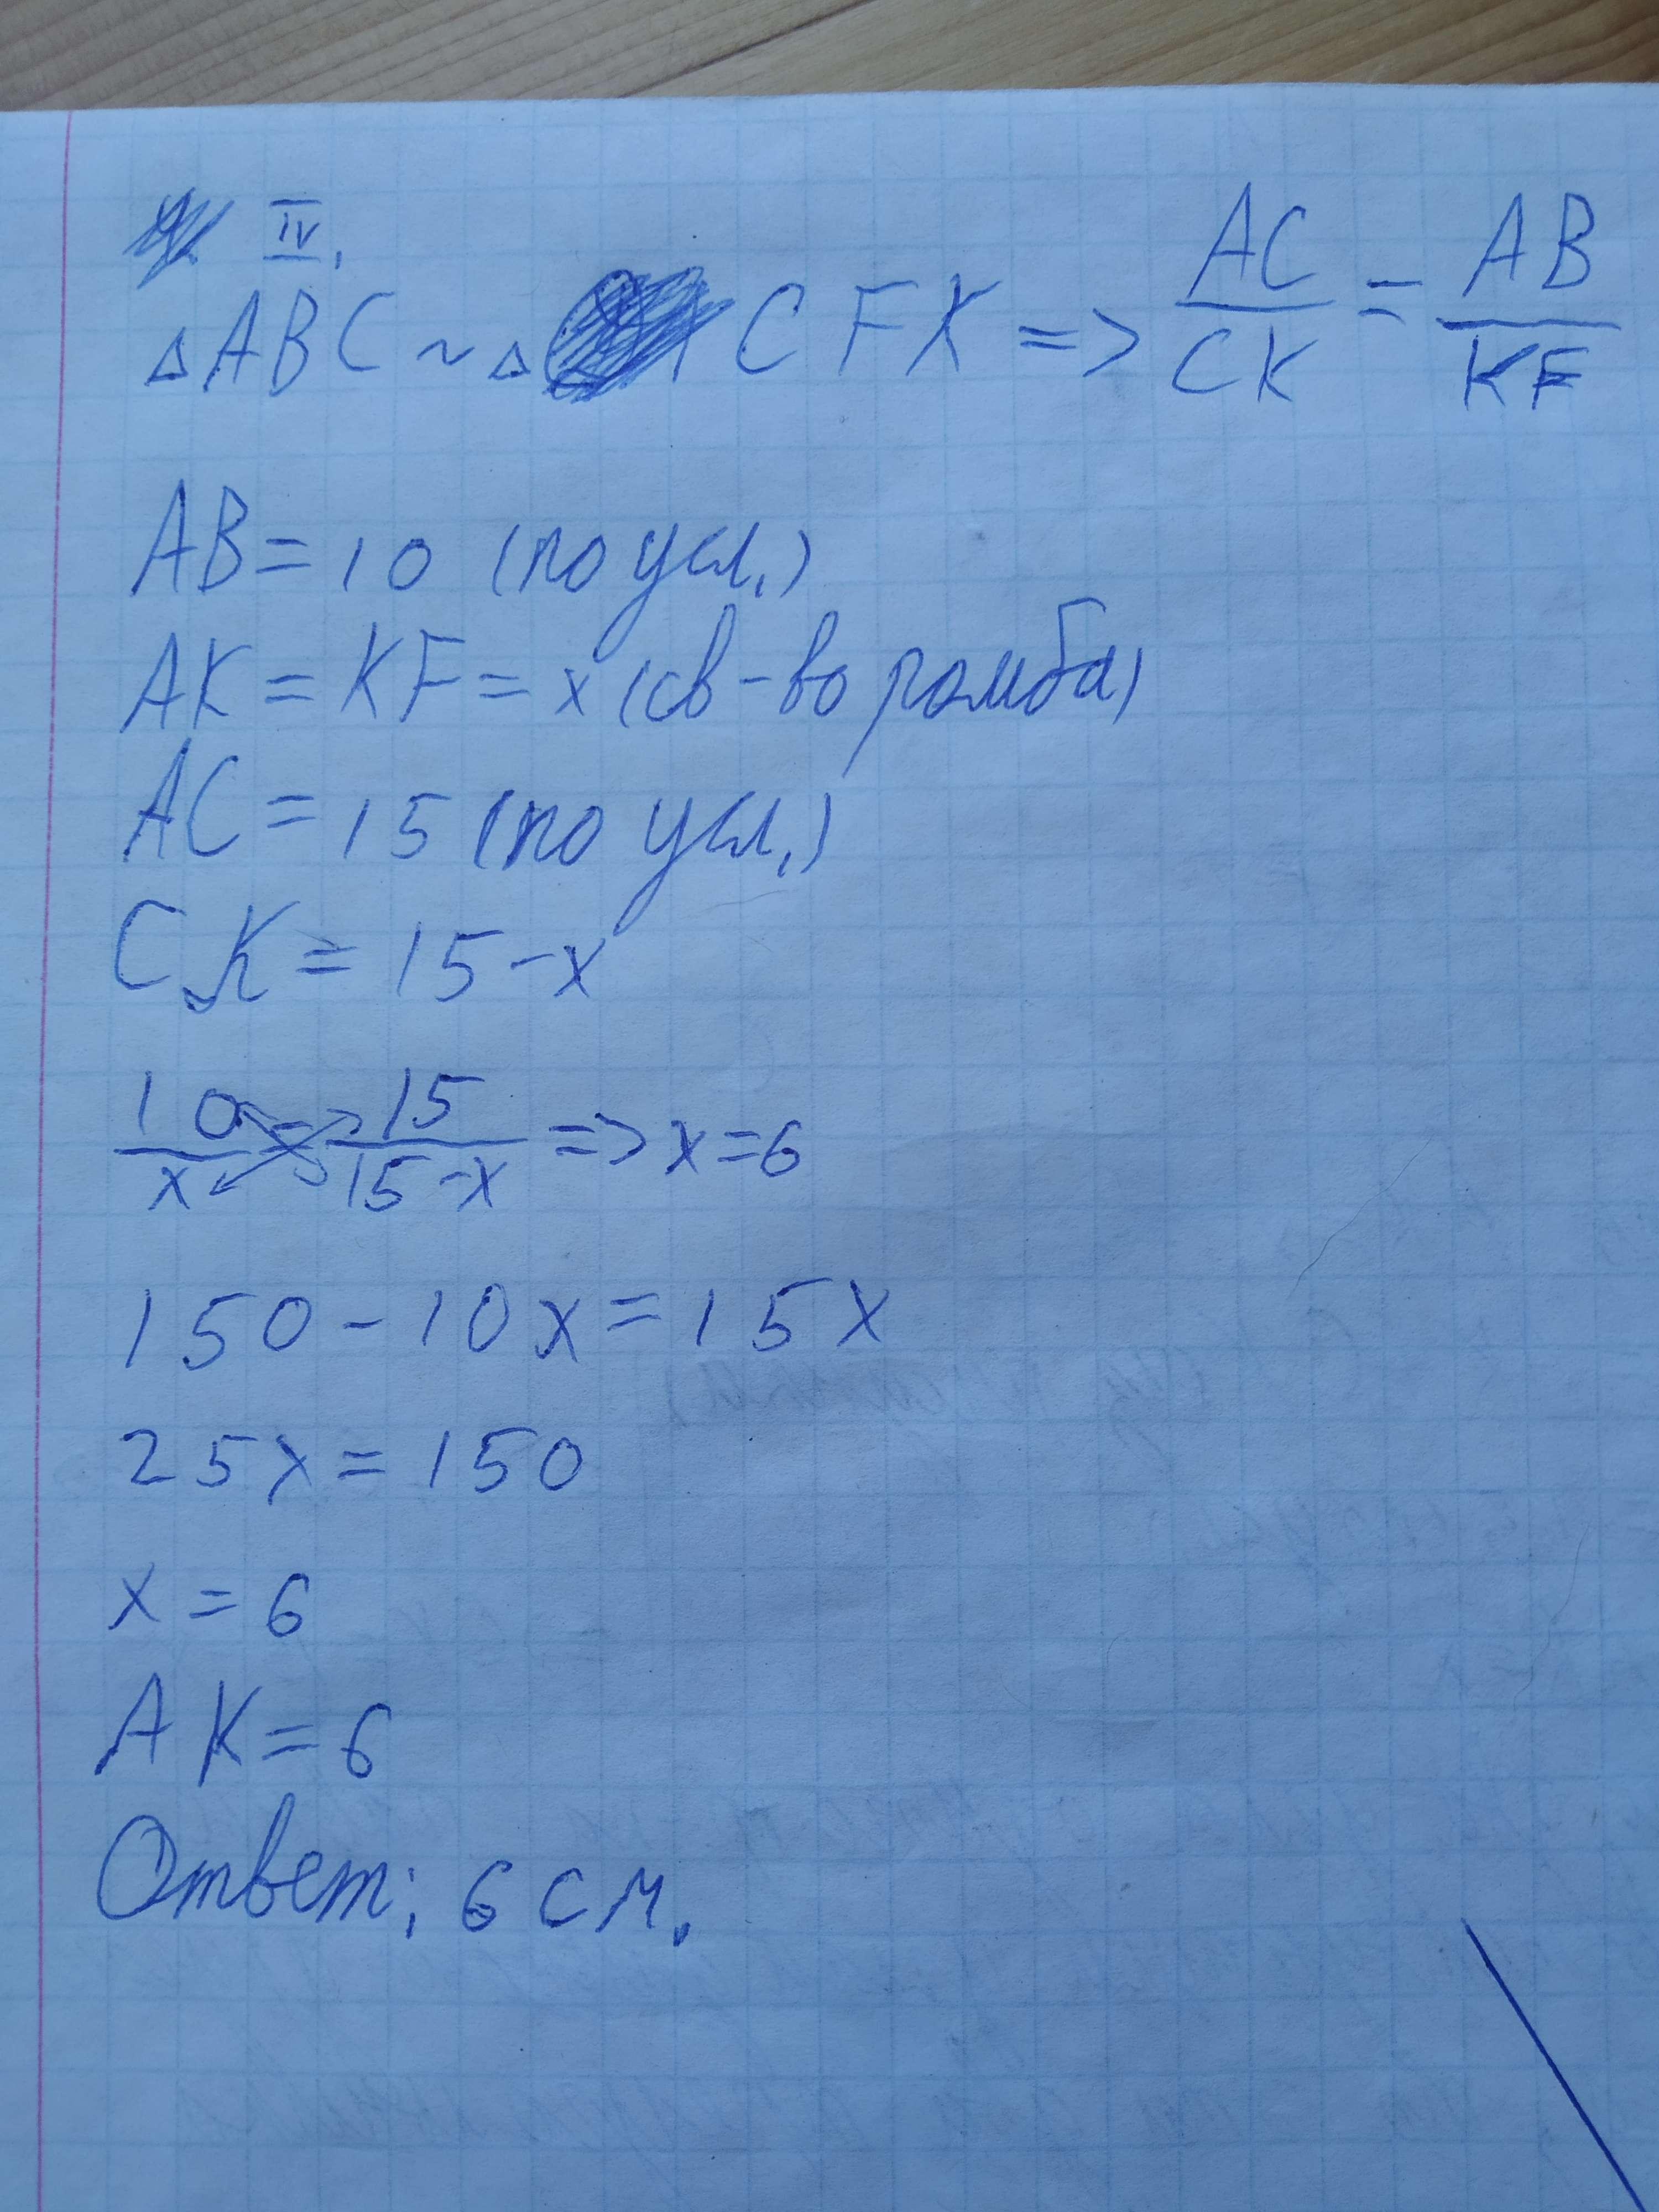 IV.
△ABC ~ △ CFK => AC/CK = AB/KF
AB = 10 (по усл.)
AK = KF = x (св-во ромба)
AC = 15 (по усл.)
CK = 15 - x
10/x = 15/15-x => x = 6
150 - 10x = 15x
25x = 150
x = 6
AK = 6
Ответ: 6 см.